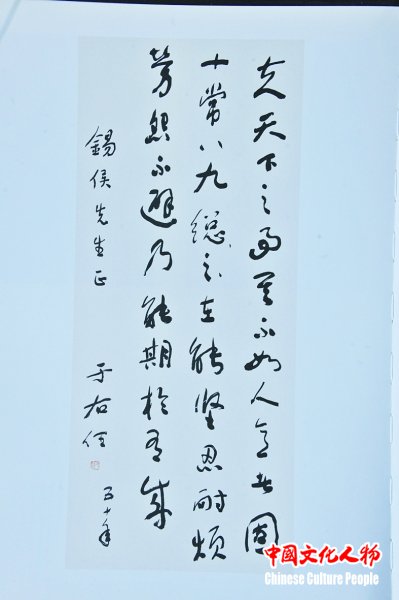 夫天下之事其不如人意者固
十常八九總之在能堅忍耐煩
勞怨不避乃能期於有成
錫侯先生正
于右任
五十年
中國文化人物
Chinese Culture People